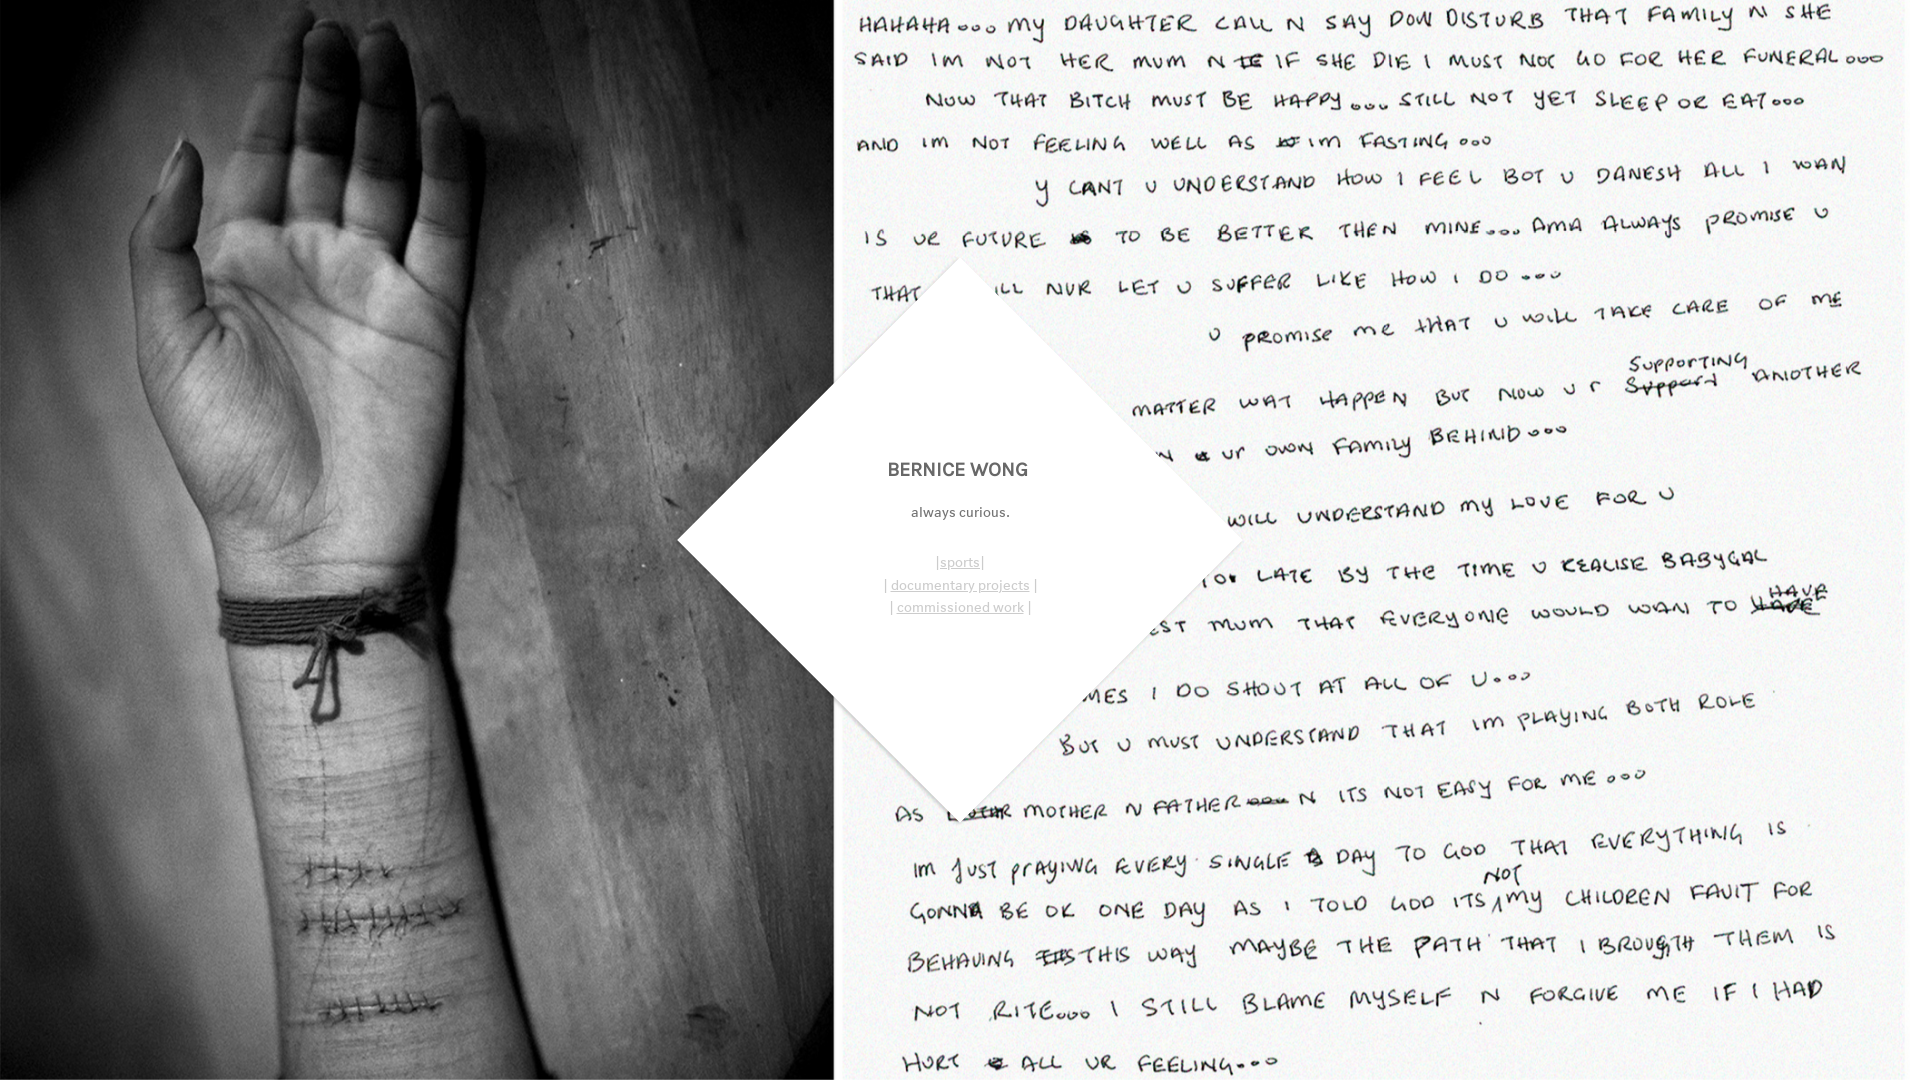 HAHAHA... MY DAUGHTER CALL N SAY DON DISTURB THAT FAMILY N SHE
SAID IM NOT HER MUM N IF SHE DIE I MUST NOT GO FOR HER FUNERAL...
NOW THAT BITCH MUST BE HAPPY... STILL NOT YET SLEEP OR EAT...
AND IM NOT FEELING WELL AS IM FASTING...
Y CANT U UNDERSTAND HOW I FEEL BOT U DANESH ALL I WAN
IS UR FUTURE TO BE BETTER THEN MINE... AMA ALWAYS PROMISE U
THAT ILL NUR LET U SUFFER LIKE HOW I DO...
U PROMISE ME THAT U WILL TAKE CARE OF ME
MATTER WAT HAPPEN BUT NOW U R SUPPORTING ANOTHER
N UR OWN FAMILY BEHIND...
WILL UNDERSTAND MY LOVE FOR U
LATE BY THE TIME U REALISE BABYGAL
EST MUM THAT EVERYONE WOULD WAN TO HAVE
MES I DO SHOUT AT ALL OF U...
BUT U MUST UNDERSTAND THAT IM PLAYING BOTH ROLE
AS MOTHER N FATHER N ITS NOT EASY FOR ME...
IM JUST PRAYING EVERY SINGLE DAY TO GOD THAT EVERYTHING IS
GONNA BE OK ONE DAY AS I TOLD GOD ITS NOT MY CHILDREN FAULT FOR
BEHAVING THIS WAY MAYBE THE PATH THAT I BROUGTH THEM IS
NOT RITE... I STILL BLAME MYSELF N FORGIVE ME IF I HAD
HURT ALL UR FEELING...
BERNICE WONG
always curious.
|sports|
| documentary projects |
| commissioned work |